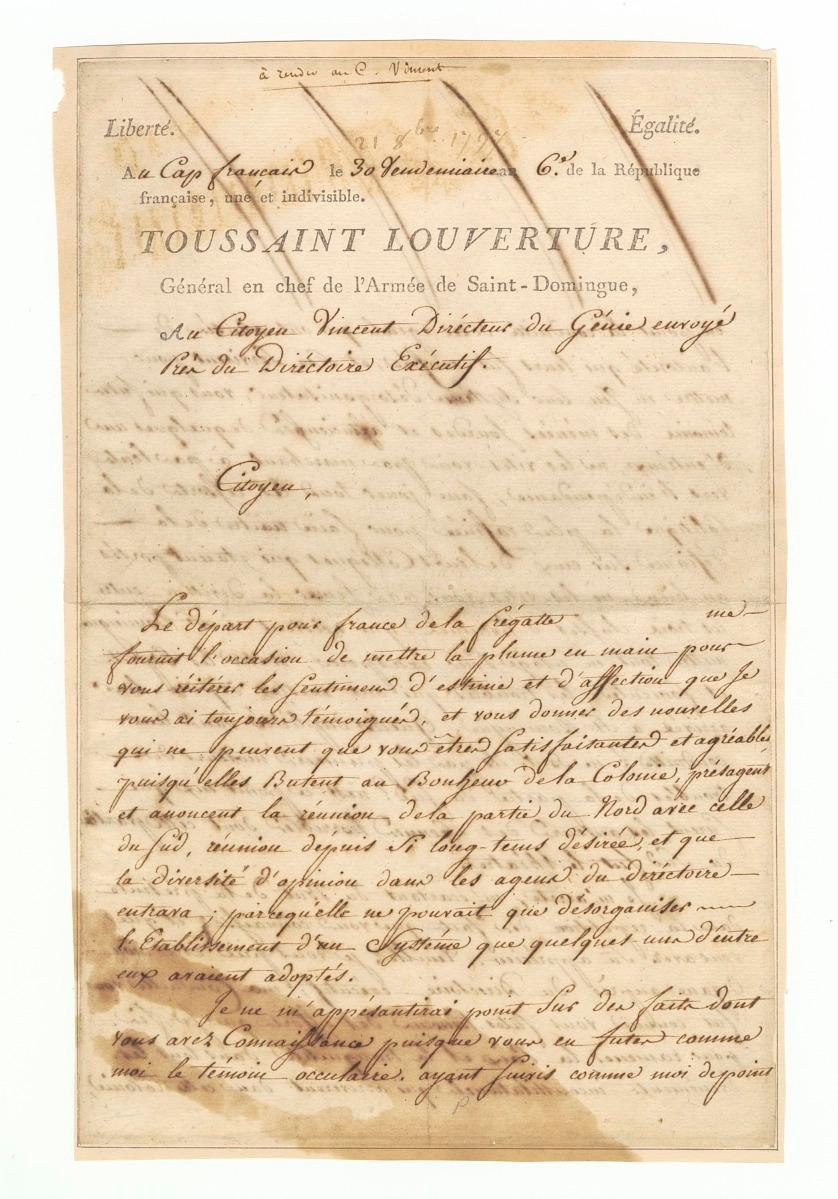 à rendre au C. Vincent
Liberté. Égalité.
21 8bre. 1797
Au Cap français le 30 Vendemiaire an 6.e de la République
française, une et indivisible.
TOUSSAINT LOUVERTURE,
Général en chef de l'Armée de Saint-Domingue,
Au Citoyen Vincent Dirécteur du Génie envoyé
Près du Diréctoire Exécutif.
Citoyen,
Le départ pour france de la frégatte me
fournit l'occasion de mettre la plume en main pour
vous réitérer les sentimens d'estime et d'affection que Je
vous ai toujours témoignés, et vous donner des nouvelles
qui ne peuvent que vous être satisfaisantes et agréables
puisqu'elles Butent au Bonheur de la Colonie, présagent
et anoncent la réunion de la partie du Nord avec celle
du Sud, réunion depuis Si long-tems désirée, et que
la diversité d'opinion dans les agens du diréctoire
entrava; parcequ'elle ne pouvait que désorganiser
l'Etablissement d'un Systéme que quelques uns d'entre
eux avaient adoptés.
Je ne m'appésantirai point Sur des faits dont
vous avez Connaissance puisque vous en futes comme
moi le témoin occulaire. ayant Suivis comme moi de point